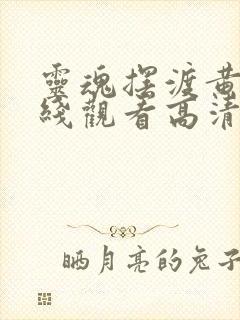 靈魂擺渡黄
綫觀看高清
晒月亮的兔子